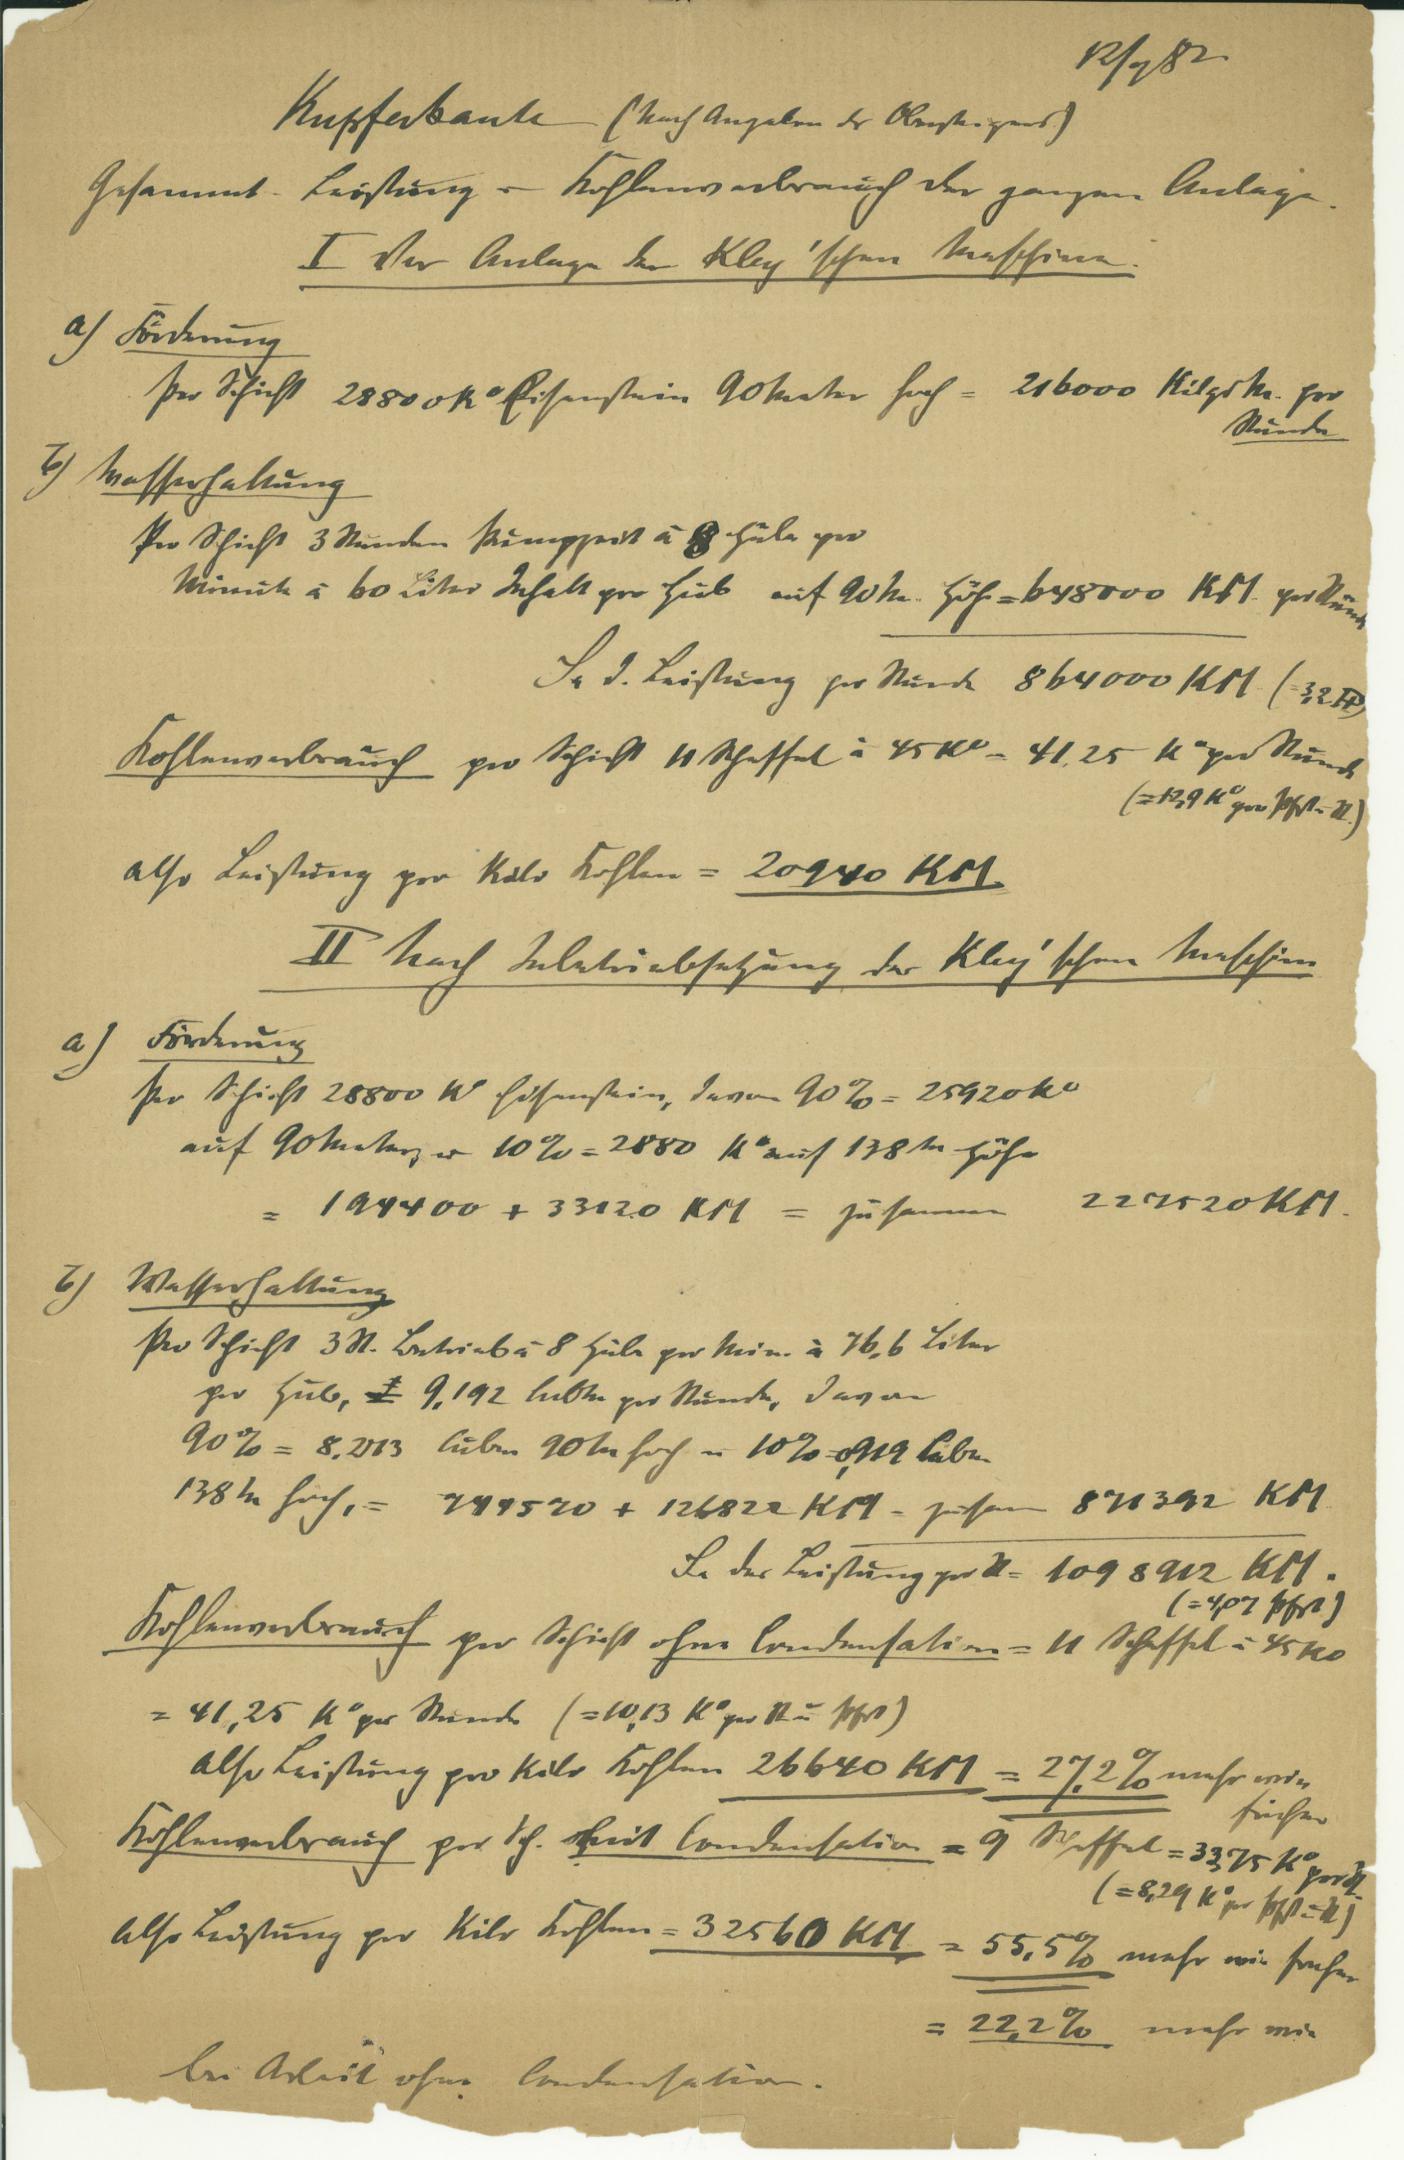 12/7 82
Kupferkaute (Nach Angaben des Obersteigers)
Gesammt-Leistung u Kohlenverbrauch der ganzen Anlage.
I Vor Anlage der Kley'schen Maschine.
a) Förderung
Per Schicht 28800 Ko Eisenstein 90 Meter hoch = 216000 Kilgrm. per
Stunde
b) Wasserhaltung
Per Schicht 3 Stunden Pumpzeit à 8 Hübe per
Minute à 60 Liter Inhalt per Hub auf 90 m. Höhe = 648000 KM per Stunde
Sa d. Leistung per Stunde 864000 KM (= 3,2 HP)
Kohlenverbrauch per Schicht 11 Scheffel à 45 Ko = 41,25 Ko per Stunde
(= 12,9 Ko per Pfst u St.)
also Leistung per Kilo Kohlen = 20940 KM
II Nach Inbetriebsetzung der Kley'schen Maschine
a) Förderung
Per Schicht 28800 Ko Eisenstein, davon 90% = 25920 Ko
auf 90 Meter, u 10% = 2880 Ko auf 138 m Höhe
= 194400 + 33120 KM = zusammen 227520 KM.
b) Wasserhaltung
Per Schicht 3 St. Betrieb à 8 Hübe per Min. à 76,6 Liter
per Hub, = 9,192 Cubm per Stunde, davon
90% = 8,273 Cubm 90 m hoch u 10% = 0,919 Cubm
138 m hoch, = 744570 + 126822 KM = zusam 871392 KM
Sa der Leistung per St = 1098912 KM.
(= 4,07 Pfst)
Kohlenverbrauch per Schicht ohne Condensation = 11 Scheffel à 45 Ko
= 41,25 Ko per Stunde (= 10,13 Ko per St u Pfst)
also Leistung pro Kilo Kohlen 26640 KM = 27,2% mehr wie
früher
Kohlenverbrauch per Sch. mit Condensation = 9 Scheffel = 33,75 Ko per St.
(= 8,29 Ko per Pfst u St)
also Leistung per Kilo Kohlen = 32560 KM = 55,5% mehr wie früher
= 22,2% mehr wie
bei Arbeit ohne Condensation.